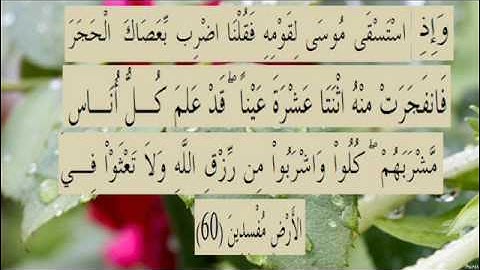 وَإِذِ اسْتَسْقَى مُوسَى لِقَوْمِهِ فَقُلْنَا اضْرِب بِّعَصَاكَ الْحَجَرَ
فَانفَجَرَتْ مِنْهُ اثْنَتَا عَشْرَةَ عَيْناً ۖ قَدْ عَلِمَ كُـــلُّ أُنَـــاسٍ
مَّشْرَبَهُمْ ۖ كُلُواْ وَاشْرَبُواْ مِن رِّزْقِ اللَّهِ وَلاَ تَعْثَوْاْ فِـــي
الأَرْضِ مُفْسِدِينَ (60)